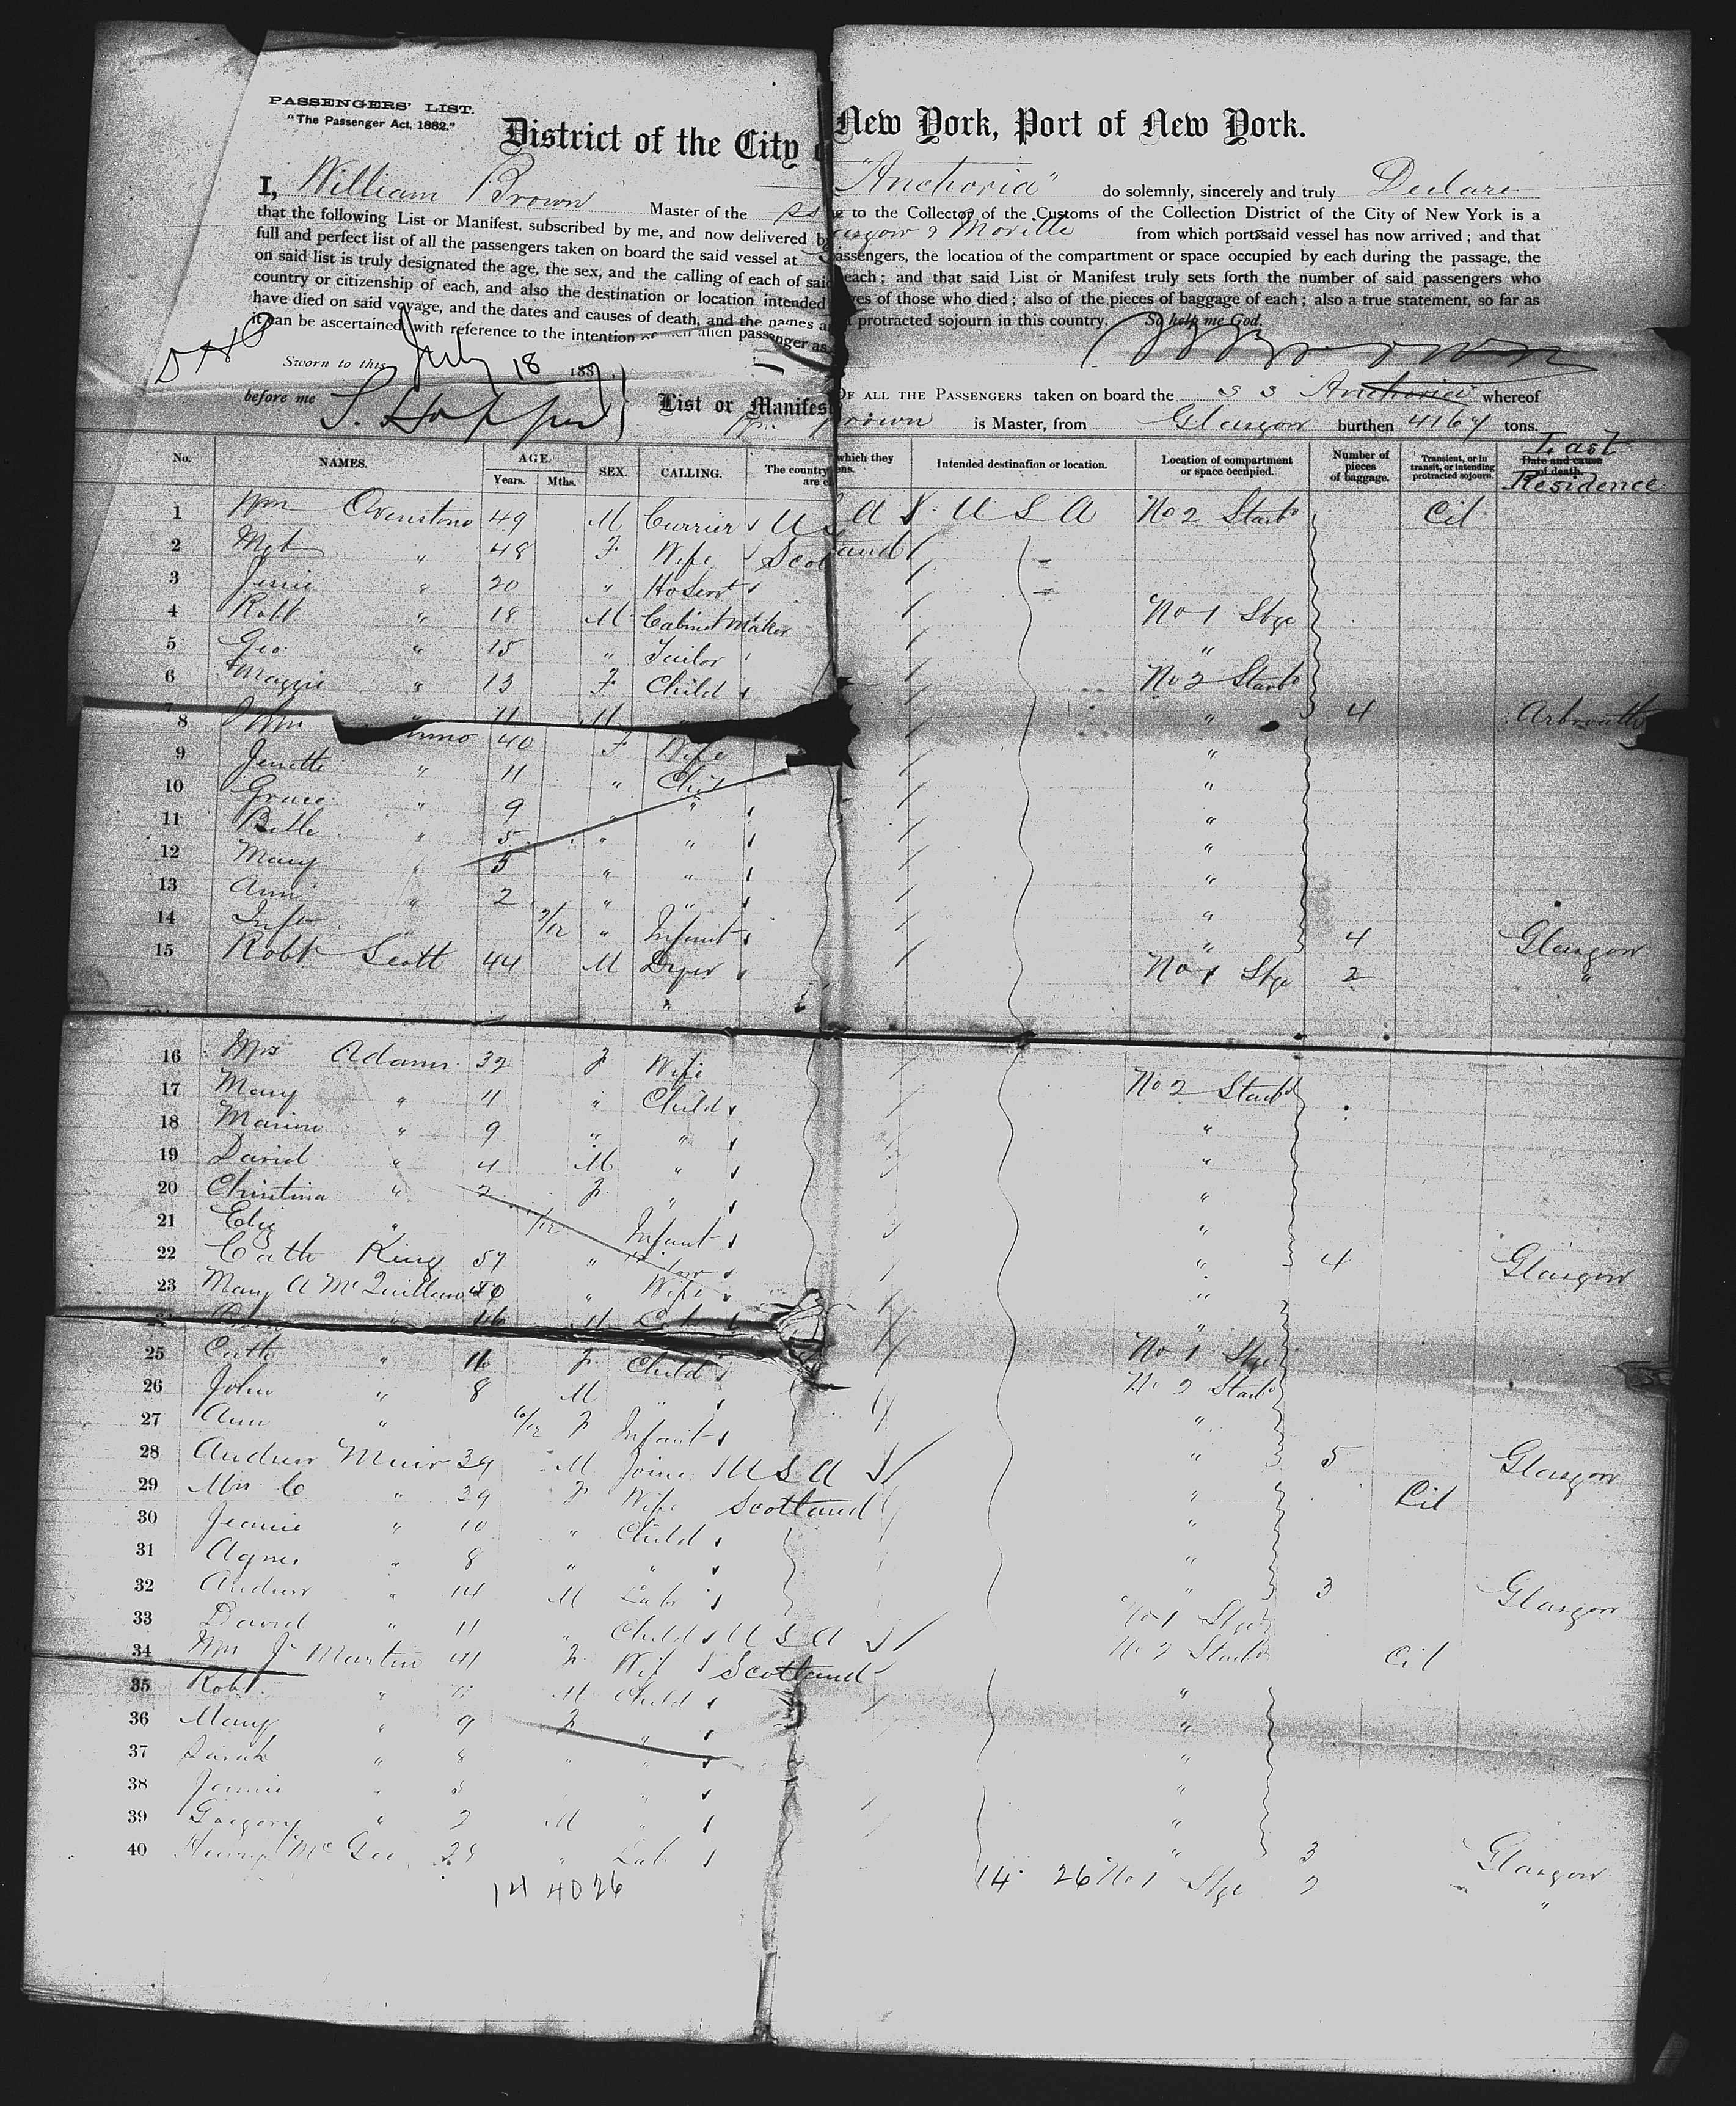 PASSENGERS' LIST.
"The Passenger Act, 1882."
District of the City New York, Port of New York.
I, William Brown Master of the SS "Anchoria" do solemnly, sincerely and truly Declare
that the following List or Manifest, subscribed by me, and now delivered by to the Collector of the Customs of the Collection District of the City of New York is a
full and perfect list of all the passengers taken on board the said vessel at Glasgow & Moville from which ports said vessel has now arrived; and that
on said list is truly designated the age, the sex, and the calling of each of said passengers, the location of the compartment or space occupied by each during the passage, the
country or citizenship of each, and also the destination or location intended each; and that said List or Manifest truly sets forth the number of said passengers who
have died on said voyage, and the dates and causes of death, and the names of those who died; also of the pieces of baggage of each; also a true statement, so far as
it can be ascertained, with reference to the intention of alien passenger as protracted sojourn in this country. So help me God.
Sworn to this July 18 188 Brown
before me S. Hopper List or Manifest OF ALL THE PASSENGERS taken on board the S S Anchoria whereof
Wm Brown is Master, from Glasgow burthen 4167 tons.
No. NAMES. AGE. Years. Mths. SEX. CALLING. The country which they are Intended destination or location. Location of compartment or space occupied. Number of pieces of baggage. Transient, or in transit, or intending protracted sojourn. Date and cause of death. Last Residence
1 Wm Ovenstone 49 M Currier U S A U S A No 2 Starb Cit
2 Mgt " 48 F Wife Scotland
3 Jessie " 20 " Ho Servt
4 Robt " 18 M Cabinet Maker No 1 Stge
5 Geo " 15 " Tailor "
6 Maggie " 13 F Child No 2 Starb
7 Wm " 11 M " 4 Arbroath
8 40 F Wife "
9 Jenette " 11 " Child "
10 Grace " 9 " " "
11 Belle " 5 " " "
12 Mary " 5 " " "
13 Ann " 2 " " "
14 Inft " " Infant " 4 Glasgow
15 Robt Scott 44 M Dyer No 1 Stge 2 "
16 Mrs Adams 32 F Wife No 2 Starb
17 Mary " 11 " Child "
18 Marion " 9 " " "
19 David " 4 M " "
20 Christina " 2 F " "
21 Eliz " Infant " 4 Glasgow
22 Cath King 57 " "
23 Mary A McQuillan 40 " Wife "
24 " 16 M Lab No 1 Stge
25 Cath " F Child No 2 Starb
26 John " 8 M " "
27 Ann " 6/12 F Infant " 5 Glasgow
28 Andrew Muir 39 M Joiner U S A " Cit
29 Mrs C " 39 F Wife Scotland "
30 Jeanie " 10 " Child "
31 Agnes " 8 " " " 3 Glasgow
32 Andrew " 14 M Lab No 1 Stge
33 David " 11 " Child U S A No 2 Starb Cit
34 Mrs J Martin 41 F Wife Scotland "
35 Robt " 11 M Child "
36 Mary " 9 F " "
37 Sarah " 8 " " "
38 Jennie " 5 " " "
39 Gregory " 2 M " " 3 Glasgow
40 Henry McGee " Lab No 1 Stge 2 "
14 40 26 14 26